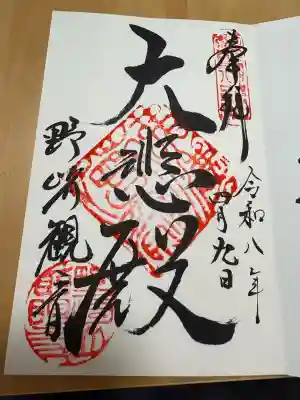 奉拝
令和八年
四月九日
大悲殿
野崎観音